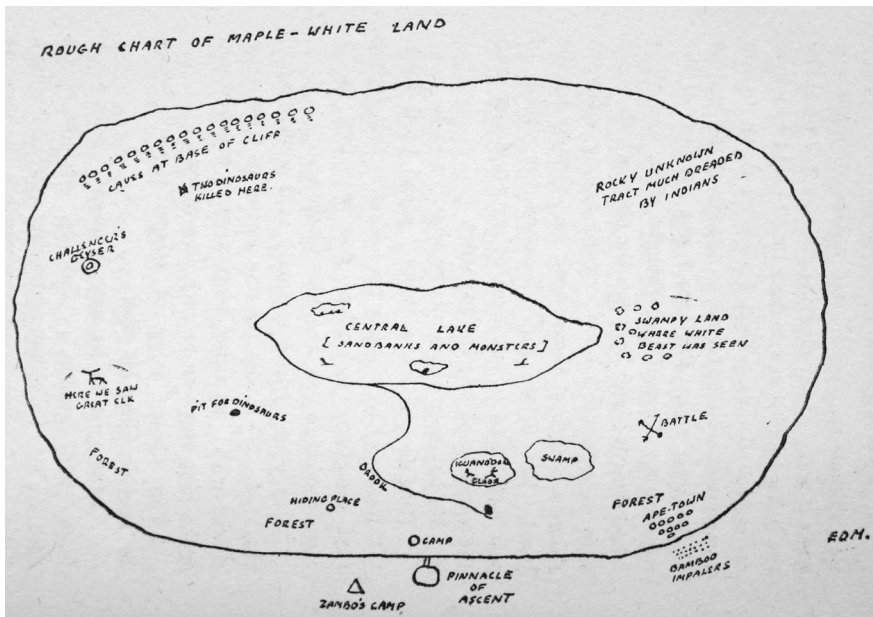 ROUGH CHART OF MAPLE-WHITE LAND
CAVES AT BASE OF CLIFF
TWO DINOSAURS
KILLED HERE.
ROCKY UNKNOWN
TRACT MUCH DREADED
BY INDIANS
CHALLENGER'S
GEYSER
CENTRAL LAKE
[SANDBANKS AND MONSTERS]
SWAMPY LAND
WHERE WHITE
BEAST WAS SEEN
HERE WE SAW
GREAT ELK
PIT FOR DINOSAURS
BATTLE
FOREST
BROOK
IGUANODON
GLADE
SWAMP
HIDING PLACE
FOREST
FOREST
APE-TOWN
CAMP
EDM.
BAMBOO
IMPALERS
PINNACLE
OF
ASCENT
ZAMBO'S CAMP